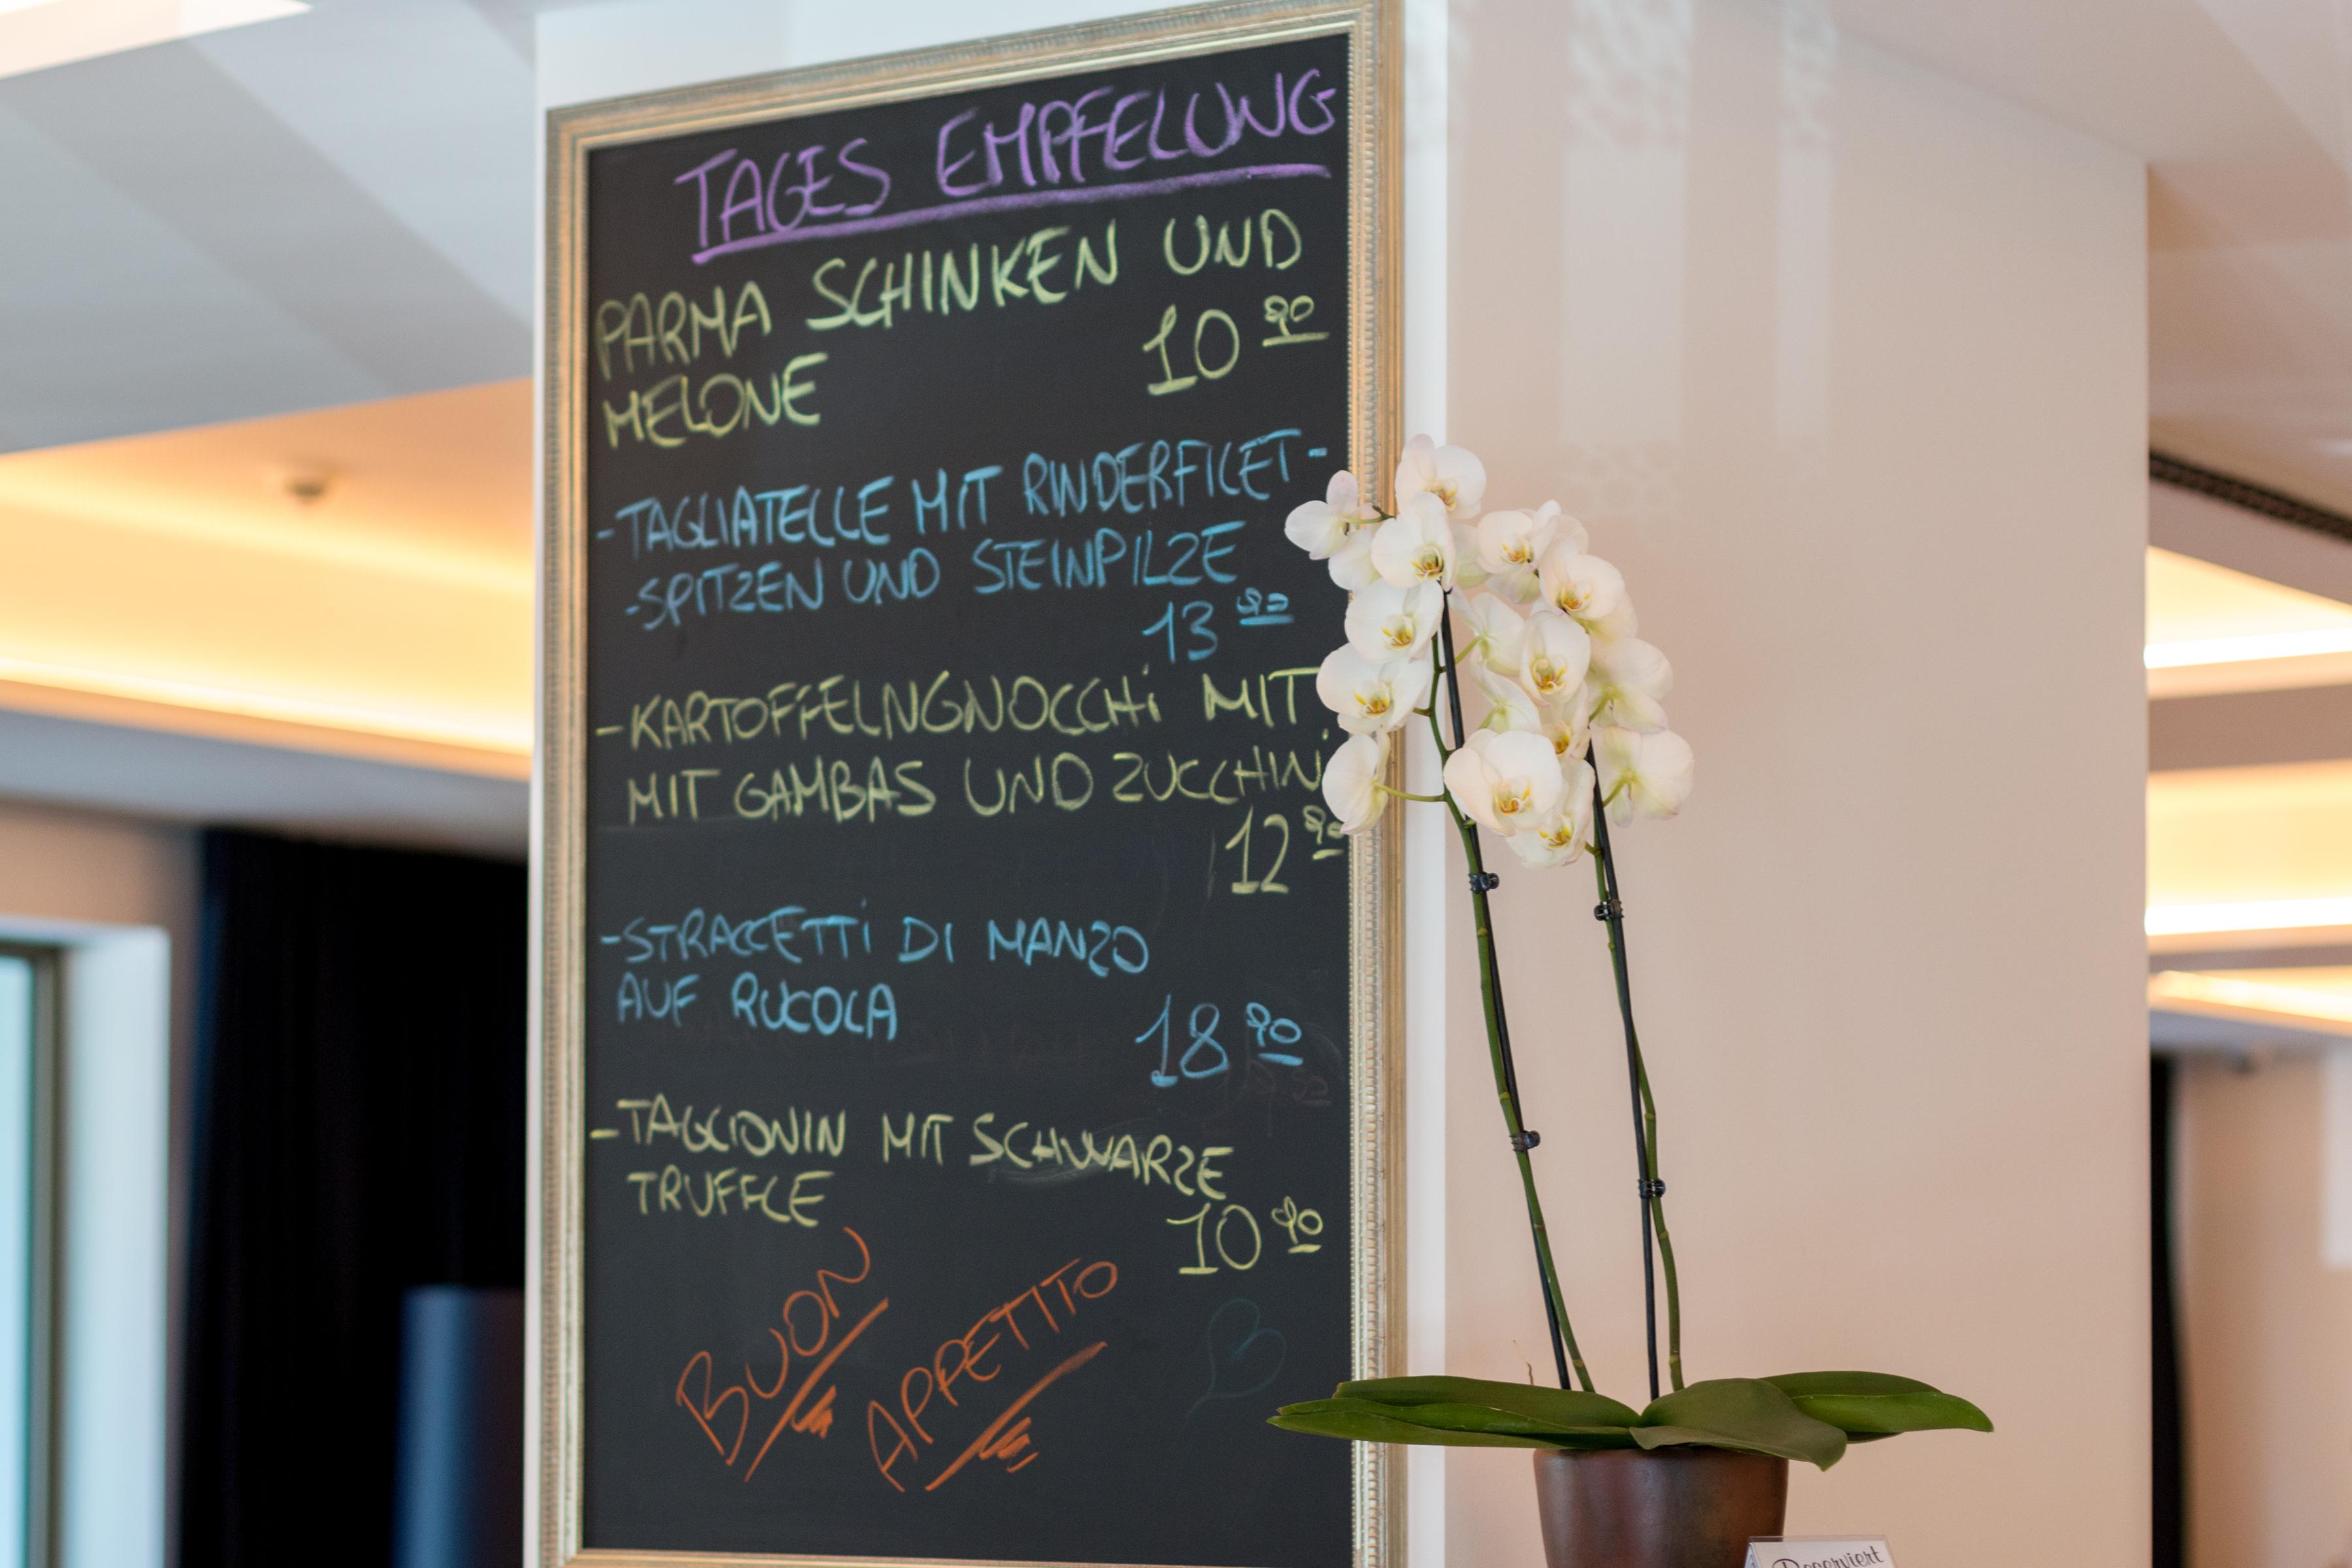 TAGES EMPFELUNG
PARMA SCHINKEN UND
MELONE 10 90
-TAGLIATELLE MIT RINDERFILET-
-SPITZEN UND STEINPILZE
13 90
-KARTOFFELNGNOCCHi MIT
MIT GAMBAS UND ZUCCHINi
12 90
-STRACCETTi DI MANZO
AUF RUCOLA 18 90
-TAGLIONIN MIT SCHWARZE
TRUFFLE 10 90
BUON
APPETITO
Reserviert